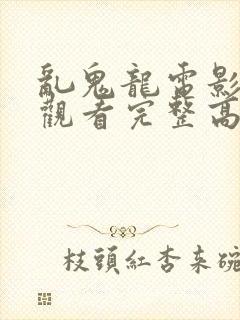 亂鬼龍電影
觀看完整高
枝頭紅杏來碗